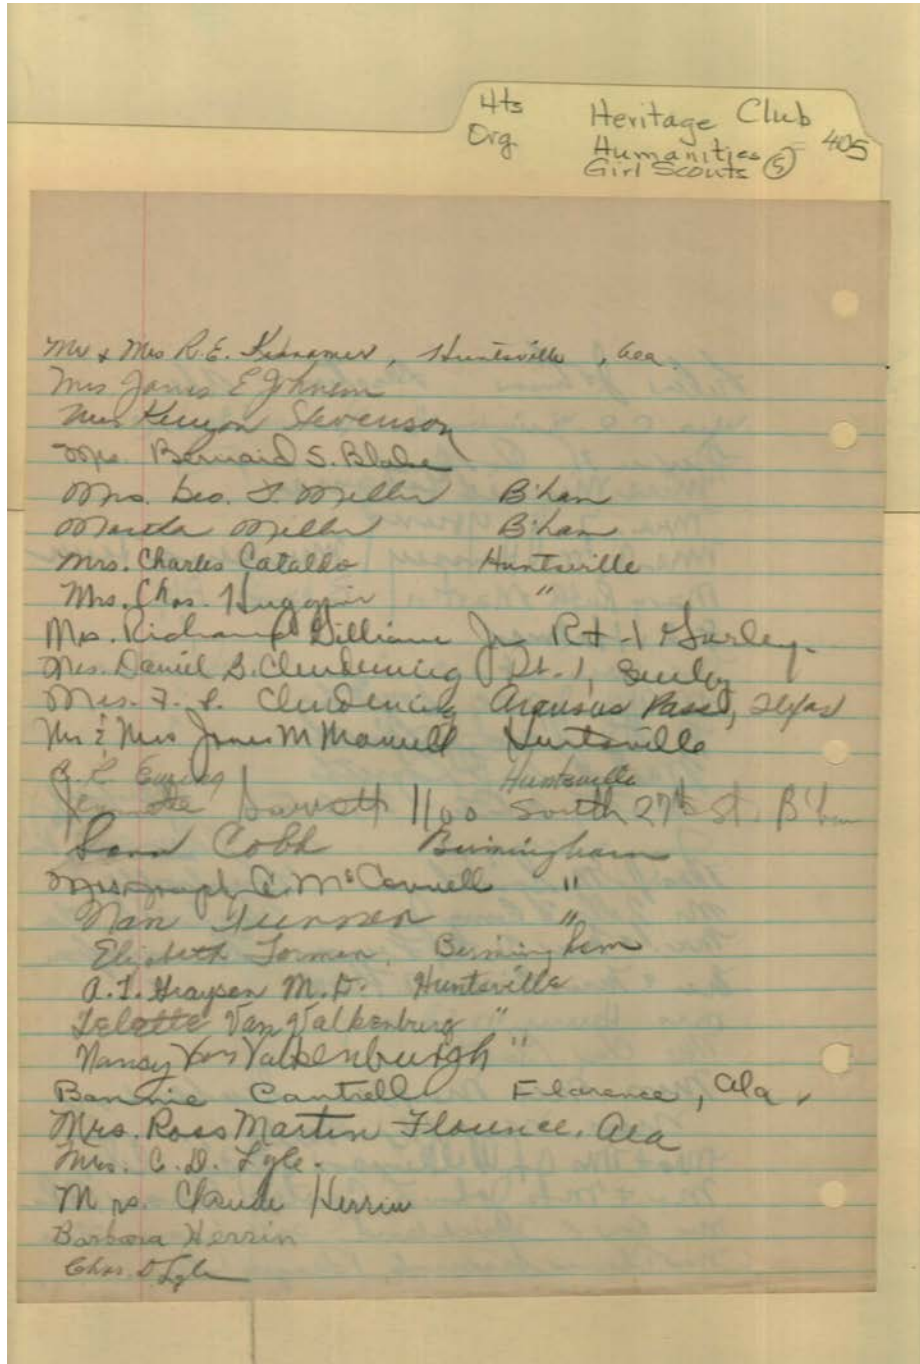 Hts Heritage Club
Org. Humanities = 405
Girl Scouts 5
Mr & Mrs R.E. Kennamer, Huntsville, Ala
Mrs James E Johnson
Mrs Kenyon Stevenson
Mrs. Bernard S. Blake
Mrs. Geo. Miller B'ham
Martha Miller B'ham
Mrs. Charles Cataldo Huntsville
Mrs. Chas. Huggin "
Mrs. Richard Gilliam Jr. Rt-1 Gurley.
Mrs. Daniel B. Clendening Rt-1, Gurley
Mrs. F. L. Clendening Aransas Pass, Texas
Mr & Mrs James M Manuell Huntsville
Ewing Huntsville
Jeanette Garrett 1100 South 27th St. B'ham
Cobb Birmingham
Mrs. Joseph A. McConnell "
Nan "
Elizabeth Forman, Birmingham
A.I. Grayson M.D. Huntsville
Lelette Van Valkenburg "
Nancy Van Valkenburgh "
Bonnie Cantrell Florence, Ala.
Mrs. Ross Martin Florence. Ala
Mrs. C. D. Lyle.
Mrs. Claude Herrin
Barbara Herrin
Chas D Lyle